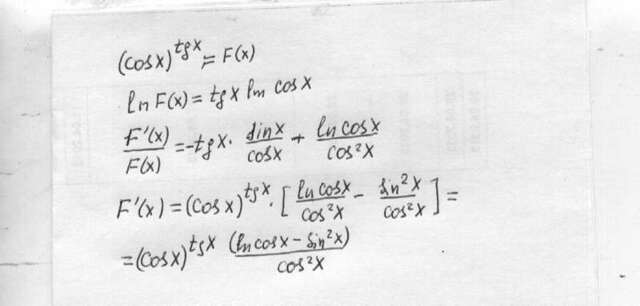 (cos x)^{tg x} = F(x)
ln F(x) = tg x ln cos x
F'(x)/F(x) = -tg x · sin x/cos x + ln cos x/cos²x
F'(x) = (cos x)^{tg x} · [ln cos x/cos²x - sin²x/cos²x] =
= (cos x)^{tg x} (ln cos x - sin²x)/cos²x